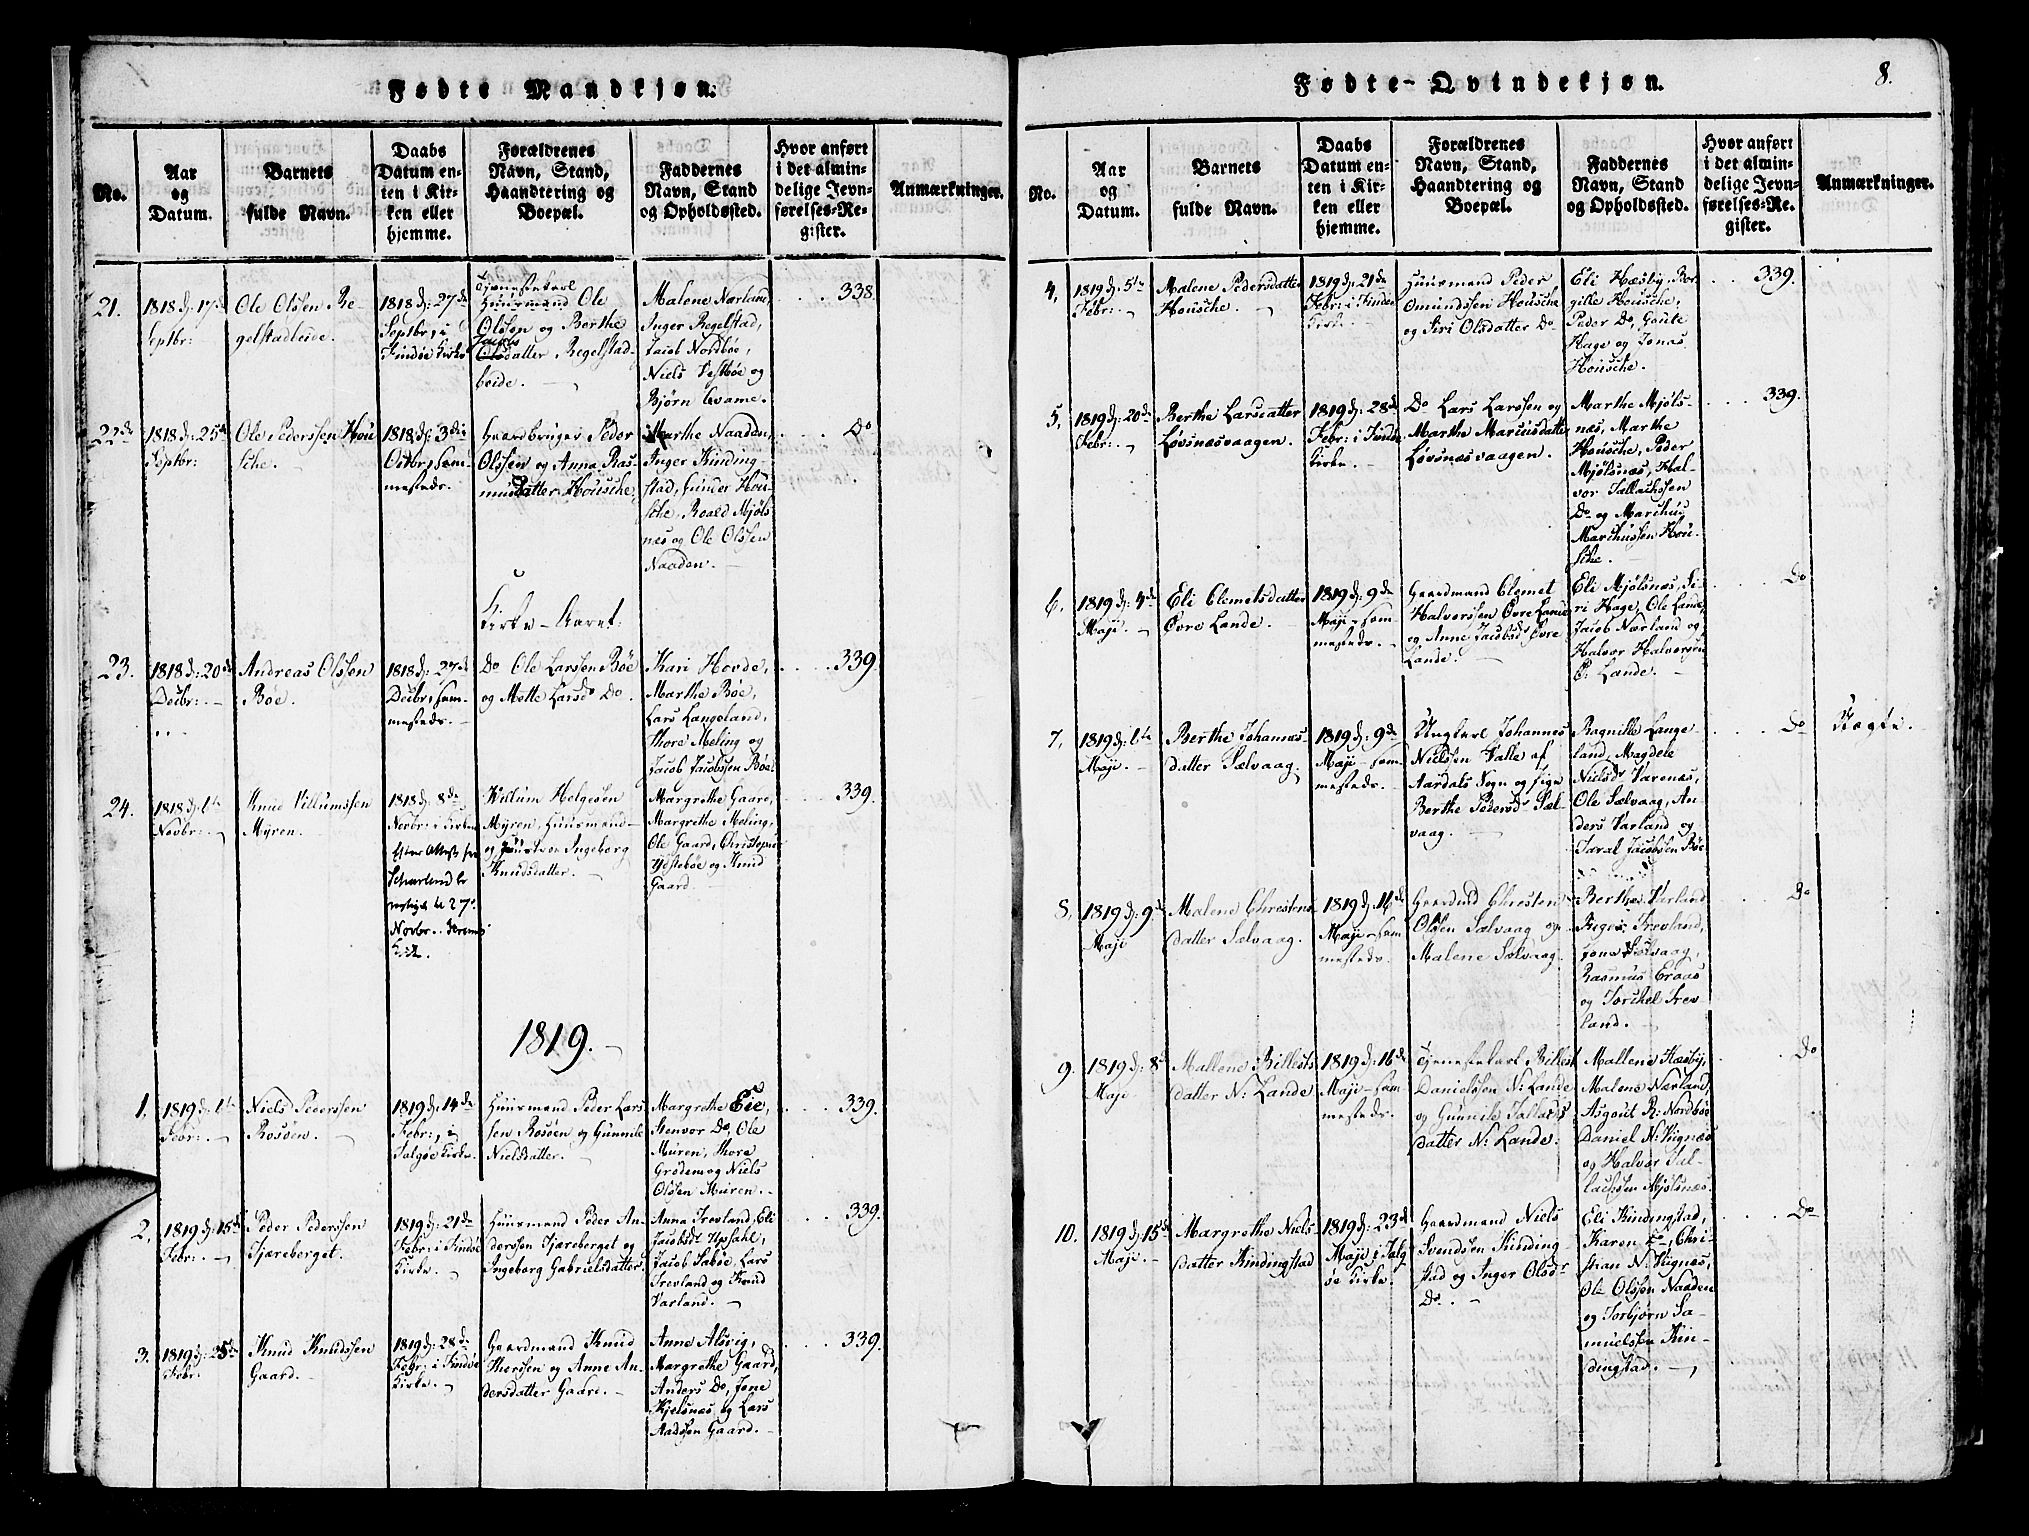 Fødte Mandkjøn.
No.
Aar
og
Datum.
Barnets
fulde Navn.
Daabs
Datum en-
ten i Kir-
ken eller
hjemme.
Forældrenes
Navn, Stand,
Haandtering og
Boepæl.
Faddernes
Navn, Stand
og Opholdssted.
Hvor anført
i det almin-
delige Jevn-
førelses-Re-
gister.
Anmærkninger.
21.
1818 d: 17de
Septbr:
Ole Olssen Re-
gelstadleide.
1818 d: 27de
Septbr, i
Findøe Kirke
Tjenestekarl
Huusmand Ole
Olssen og Berthe
Jacobs
Olsdatter Regelstad-
leide.
Malene Nærland,
Inger Regelstad,
Jacob Nordbøe,
Niels Vestbøe og
Bjørn Qvame.
338.
22de
1818 d: 25de
Septbr:
Ole Pederssen Hou
sche.
1818 d: 3die
Octbr, sam-
mesteds.
Gaardbruger Peder
Olssen og Anna Ras-
musdatter Housche,
Marthe Naaden,
Inger Kinding-
stad, Gunder Hou-
sche, Roald Mjøls
næs og Ole Olssen
Naaden.
Do
Kirke-Aaret.
23.
1818 d: 20de
Decbr:
Andreas Olssen
Bøe.
1818 d: 27de
Decbr, sam-
mesteds.
Do Ole Larssen Bøe
og Mette Larsd. Do.
Kari Hovde,
Marthe Bøe,
Lars Langeland,
Thore Meling og
Jacob Jacobssen Bøe.
339.
24.
1818 d: 1te
Novbr:
Knud Villumssen
Myren.
1818 d: 8de
Novbr: i Kirken
Villum Helgesen
Myren, Huusmand
og Hustroe Ingeborg
Knudsdatter.
Margrethe Gaard,
Margrethe Meling,
Ole Gaard, Christopher
Ydstebøe og Knud
Gaard.
339.
1819.
1.
1819 d: 1te
Febr:
Niels Pederssen
Rosøen.
1819 d: 14de
Febr:, i
Talgøe Kirke.
Huusmand Peder Lars
sen Rosøen og Gunnile
Nielsdatter.
Margrethe Eie,
Stenvor Do, Ole
Muren, Thore
Grødem og Niels
Olssen Muren.
339.
2.
1819 d: 15de
Febr:
Peder Pederssen
Tjæreberget.
1819 d: 21de
Febr: i Findøe
Kirke.
Huusmand Peder An-
derssen Tjæreberget og
Ingeborg Gabrielsdatter,
Anna Trevland, Eli
Jacobsdt Upsahl,
Jacob Sabøe, Lars
Trevland og Knud
Varland.
339.
3.
1819 d: 25de
Febr.
Knud Knudssen
Gaard.
1819 d: 28de
Febr: i Findøe
Kirke.
Gaardmand Knud
Thorssen og Anne An-
dersdatter Gaard.
Anne Alsvig,
Margrethe Gaard,
Anders Do, Jone
Kjelsnæs og Lars
Aadssen Gaard.
339.
8.
Fødte-Qvindekjøn.
No.
Aar
og
Datum.
Barnets
fulde Navn.
Daabs
Datum en-
ten i Kir-
ken eller
hjemme.
Forældrenes
Navn, Stand,
Haandtering og
Boepæl.
Faddernes
Navn, Stand
og Opholdssted.
Hvor anført
i det almin-
delige Jevn-
førelses-Re-
gister.
Anmærkninger.
4,
1819 d: 5te
Febr:
Malene Pedersdatter
Housche.
1819 d: 21de
Febr: i Findøe
Kirke.
Huusmand Peder
Omundssen Housche
og Siri Olsdatter Do.
Eli Hæsby, Bor-
gille Housche,
Peder Do, Goute
Hage og Jonas
Housche.
339.
5,
1819 d: 20de
Febr:
Berthe Larsdatter
Løvsnæsvaagen.
1819 d: 28de
Febr: i Findøe
Kirke.
Do Lars Larssen og
Marthe Marcusdatter
Løvsnæsvaagen.
Marthe Mjøls-
næs, Marthe
Housche, Peder
Mjølsnæs, Hal-
vor Tællachssen
Do og Marchus
Marchussen Hou-
sche.
339.
6,
1819 d: 4de
Maji.
Eli Clemetsdatter
Øvre Lande.
1819 d: 9de
Maji - sam-
mesteds.
Gaardmand Clemet
Halvorssen Øvre Lande
og Anne Jacobsdr Øvre
Lande.
Eli Mjølsnæs, Si-
ri Hage, Ole Lande,
Jacob Nærland og
Halvor Halvorssen
Ø: Lande.
Do
7,
1819 d: 1te
Maji.
Berthe Johannes-
datter Sælvaag.
1819 d: 9de
Maji - sam-
mesteds.
Ungkarl Johannes
Nielssen Valle af
Aardals Sogn og Pige
Berthe Pedersdr Sæl-
vaag.
Ragnille Lange-
land, Magdele
Nielsdr Varenæs,
Ole Sælvaag, An-
ders Varland og
Taral Jacobssen Bøe
Do
Uægte.
8,
1819 d: 9de
Maji
Malene Christens
datter Sælvaag.
1819 d: 16de
Maji - sam-
mesteds.
Gaardmd Christen
Olsen Sælvaag og
Malene Sælvaag.
Berthe Varland
Inger Trevland,
Jone Sælvaag,
Rasmus Eraas
og Torchel Trev
land.
Do
9.
1819 d: 8de
Maji
Mallene Billests
datter N: Lande
1819 d: 16de
Maji - sam-
mesteds.
Tjenestekarl Billest
Danielssen N: Lande
og Gunnile Tallachs
datter N: Lande.
Mallene Hæsby,
Malene Nærland,
Asgout R: Nordbøe
Daniel N: Vignæs
og Halvor Tal-
lachssen Mjølsnæs.
Do
10.
1819 d: 15de
Maji.
Margrethe Niels
datter Kindingstad
1819 d: 23de
Maji i Talg
øe Kirke.
Gaardmand Niels
Svendsen Kinding
stad og Inger Olsdr
Do.
Eli Kindingstad,
Karen Do, Chri-
stian N: Vignæs,
Ole Olssen Naaden
og Torbjørn Sa-
muelssen Kin-
dingstad.
Do